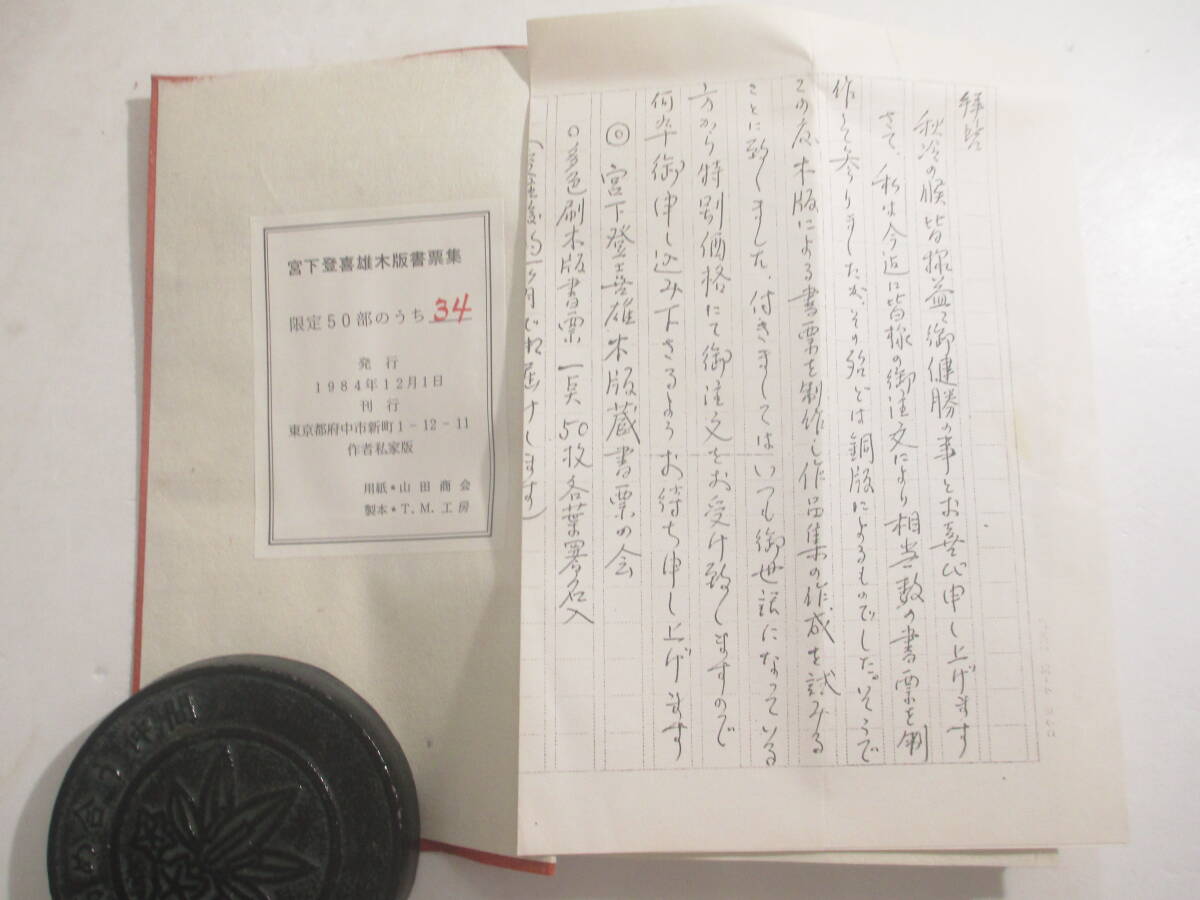 宮下登喜雄木版書票集
限定50部のうち 34
発行
1984年12月1日
刊行
東京都府中市新町1-12-11
作者私家版
用紙*山田商会
製本*T.M.工房
拝啓
秋冷の候皆様益々御健勝の事とお喜び申し上げます
さて、私は今迄に皆様の御注文により相当数の書票を制
作して参りましたが、その殆どは銅版によるものでした。そこで
この度木版による書票を制作し作品集の作成を試みる
ことに致しました。付きましてはいつも御世話になっている
方から特別価格にて御注文をお受け致しますので
何卒御申し込み下さるようお待ち申し上げます
◎宮下登喜雄木版蔵書票の会
○多色刷木版書票 一点 50枚各葉署名入